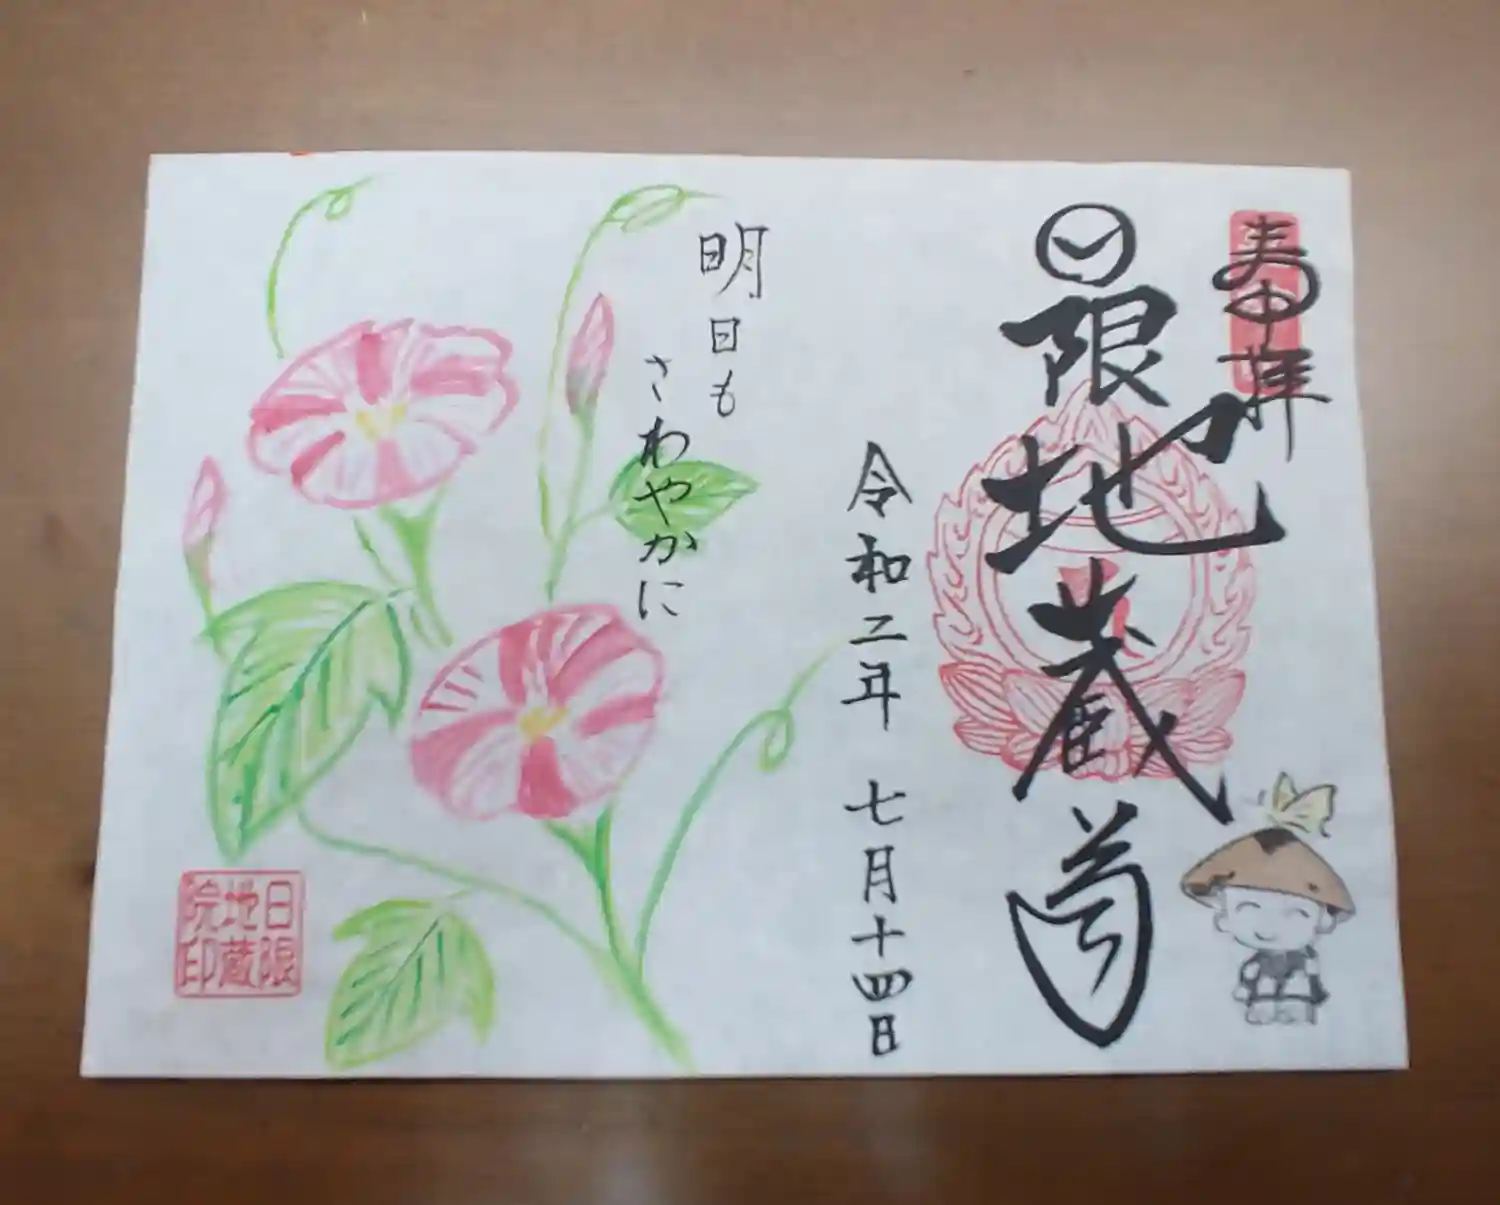 奉拝
日限地蔵尊
令和二年 七月十四日
明日も
さわやかに
日限
地蔵
院印